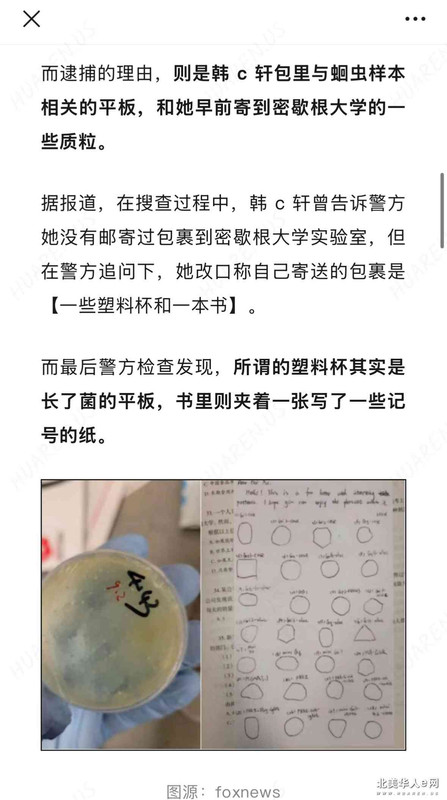 而逮捕的理由，则是韩 c 轩包里与蛔虫样本
相关的平板，和她早前寄到密歇根大学的一
些质粒。
据报道，在搜查过程中，韩 c 轩曾告诉警方
她没有邮寄过包裹到密歇根大学实验室，但
在警方追问下，她改口称自己寄送的包裹是
【一些塑料杯和一本书】。
而最后警方检查发现，所谓的塑料杯其实是
长了菌的平板，书里则夹着一张写了一些记
号的纸。
9.2
Hello! this is a fun
I hope you can enjoy the
图源：foxnews
北美华人e网
HUARENUS